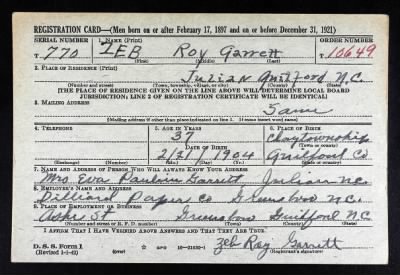 REGISTRATION CARD—(Men born on or after February 17, 1897 and on or before December 31, 1921)
SERIAL NUMBER 1. NAME (Print) ORDER NUMBER
T 770 ZEB Roy Garrett T 10649
(First) (Middle) (Last)
2. PLACE OF RESIDENCE (Print)
Julian Guilford N.C.
(Number and street) (Town, township, village, or city) (County) (State)
[THE PLACE OF RESIDENCE GIVEN ON THE LINE ABOVE WILL DETERMINE LOCAL BOARD
JURISDICTION; LINE 2 OF REGISTRATION CERTIFICATE WILL BE IDENTICAL]
3. MAILING ADDRESS
Same
[Mailing address if other than place indicated on line 2. If same insert word same]
4. TELEPHONE 5. AGE IN YEARS 6. PLACE OF BIRTH
37 Clay township
DATE OF BIRTH (Town or county)
2/21/1904 Guilford Co
(Exchange) (Number) (Mo.) (Day) (Yr.) (State or country)
7. NAME AND ADDRESS OF PERSON WHO WILL ALWAYS KNOW YOUR ADDRESS
Mrs Eva Garrett Julian N.C.
8. EMPLOYER'S NAME AND ADDRESS
Dillard Paper Co Greensboro N.C.
9. PLACE OF EMPLOYMENT OR BUSINESS
St Greensboro Guilford N.C.
(Number and street or R. F. D. number) (Town) (County) (State)
I AFFIRM THAT I HAVE VERIFIED ABOVE ANSWERS AND THAT THEY ARE TRUE.
D. S. S. Form 1 (over)
(Revised 1-1-42)
Zeb Roy Garrett
(Registrant's signature)